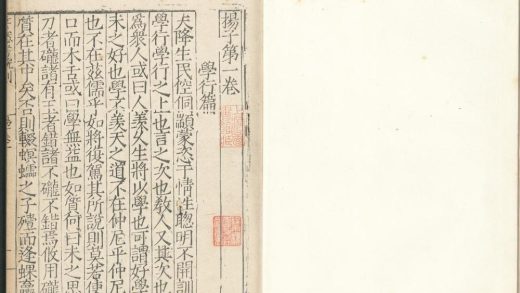 揚子第一卷
學行篇
天降生民倥侗顓蒙恣于情性聦明不開訓
學行學行之上也言之次也敎人又其次也
爲衆人或曰人羨久生將以學也可謂好學
未之好也學不羨天之道不在仲尼乎仲尼
也不在兹儒乎如將復駕其所說則莫若使
口而木舌或曰學無益也如質何曰未之思
刀者礲諸有玉者錯諸不礲不錯焉攸用礲
質在其中矣否則輟螟蠕之子殪而逢蜾蠃